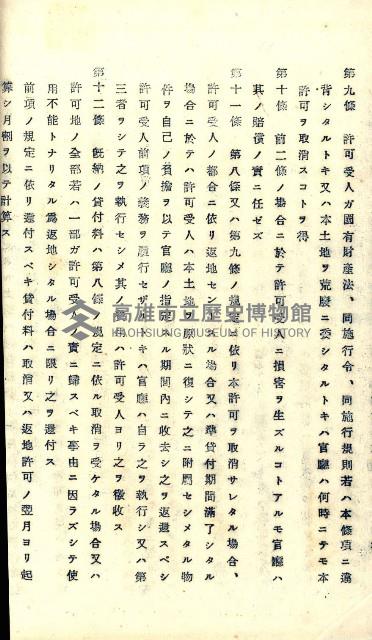 第九條 許可受人ガ國有財產法、同施行令、同施行規則若ハ本條項ニ違
背シタルトキ又ハ本土地ヲ荒廢ニ委シタルトキハ官廳ハ何時ニテモ本
許可ヲ取消スコトヲ得
第十條 前二條ノ場合ニ於テ許可受人ニ損害ヲ生ズルコトアルモ官廳ハ
其ノ賠償ノ責ニ任ゼズ
第十一條 第八條又ハ第九條ノ規定ニ依リ本許可ヲ取消サレタル場合、
許可受人ノ都合ニ依リ返地セントスル場合又ハ準貸付期間滿了シタル
場合ニ於テハ許可受人ハ本土地ヲ原狀ニ復シテ之ニ附屬セシメタル物
件ヲ自己ノ負擔ヲ以テ官廳ノ指定スル期間內ニ收去シ之ヲ返還スベシ
許可受人前項ノ義務ヲ履行セザルトキハ官廳ハ自ラ之ヲ執行シ又ハ第
三者ヲシテ之ヲ執行セシメ其ノ費用ハ許可受人ヨリ之ヲ徵收ス
第十二條 既納ノ貸付料ハ第八條ノ規定ニ依ル取消ヲ受ケタル場合又ハ
許可地ノ全部若ハ一部ガ許可受人ノ責ニ歸スベキ事由ニ因ラズシテ使
用不能トナリタル爲返地シタル場合ニ限リ之ヲ還付ス
前項ノ規定ニ依リ還付スベキ貸付料ハ取消又ハ返地許可ノ翌月ヨリ起
算シ月割ヲ以テ計算ス
高雄市立歷史博物館
KAOHSIUNG MUSEUM OF HISTORY